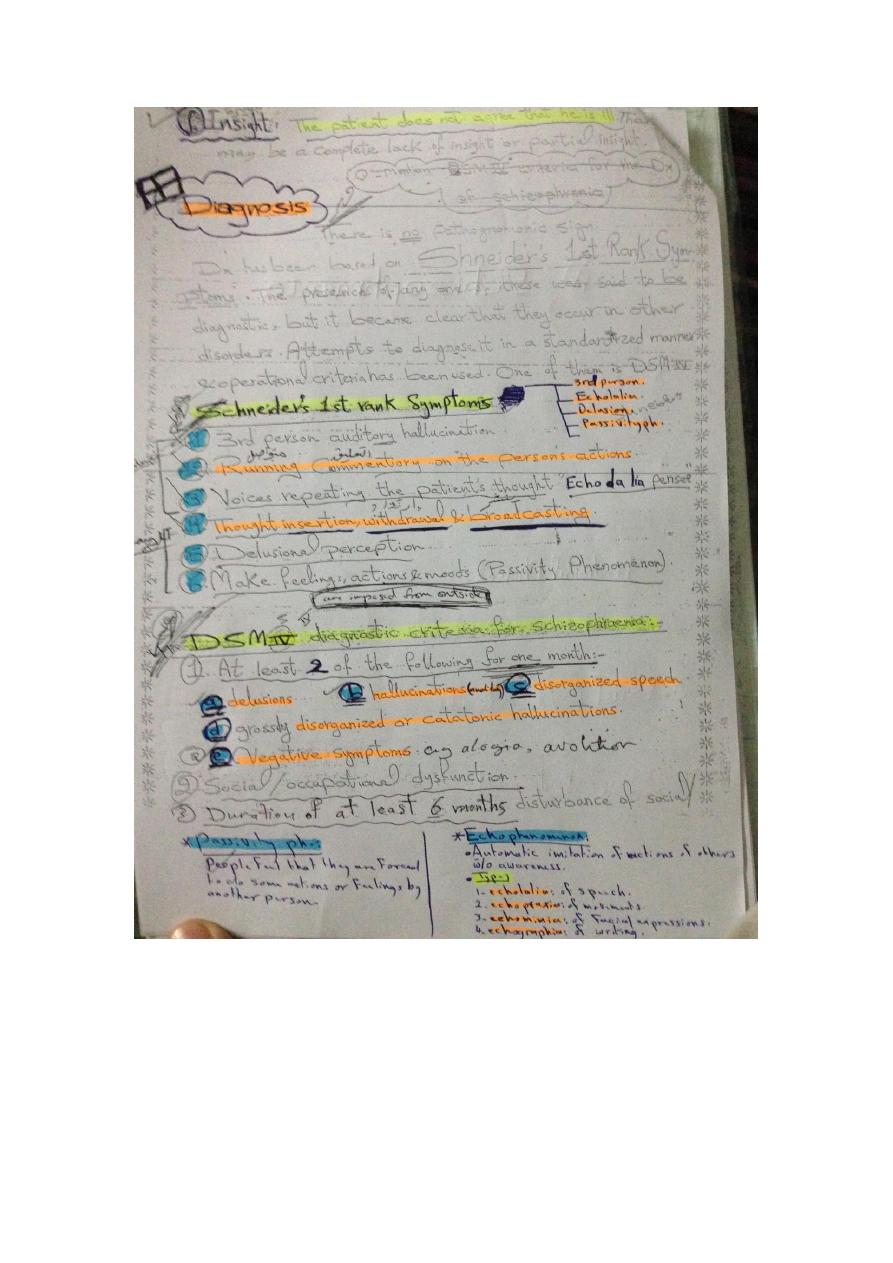 Insight: The patient does not agree that he is ill. There
may be a complete lack of insight or partial insight.
Q DSM IV criteria for the Dx
of schizophrenia
Diagnosis
There is no Pathognomonic sign.
Dx has been based on Shneider's 1st Rank Sym-
ptoms. The presence of any one of these was said to be
diagnostic, but it became clear that they occur in other
disorders. Attempts to diagnose it in a standardized manner
& operational criteria has been used. One of them is DSM IV
3rd person.
Echolalia
Delusion
Passivity ph.
Schneider's 1st rank Symptoms
1 3rd person auditory hallucination
متواصل التعليق
2 Running Commentary on the person's actions
3 Voices repeating the patient's thought "Echo da lia pensee"
4 Thought insertion, withdrawal & broadcasting
5 Delusional perception
6 Make feelings, actions & moods (Passivity Phenomenon).
are imposed from outside
DSM IV diagnostic criteria for Schizophraenia:-
1. At least 2 of the following for one month:-
a delusions b hallucinations c disorganized speech
d grossly disorganized or catatonic hallucinations.
e Negative symptoms eg alogia, avolition
2 Social/occupational dysfunction.
3 Duration of at least 6 months disturbance of social/
* Passivity ph.:
People feel that they are forced
to do some actions or feelings by
another person.
* Echophenominon:
• Automatic imitation of actions of others
w/o awareness.
• Types
1. echolalia: of speech.
2. echopraxia: of movements.
3. echomimia: of facial expressions.
4. echographia: of writing.